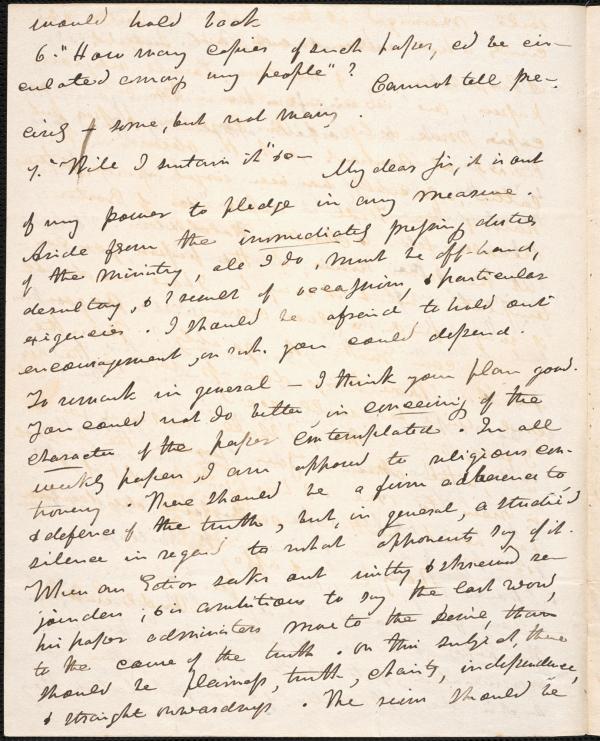 would hold back
6. "How many copies of such paper, cd be cir-
culated among my people"? Cannot tell pre-
cisely — some, but not many.
7. "Will I sustain it" &c — My dear Sir, it is out
of my power to pledge in any measure.
Aside from the immediately pressing duties
of the ministry, all I do, must be off-hand,
desultory, & result of occasions, & particular
exigencies. I should be afraid to hold out
encouragement, on wh. you could depend.
To remark in general — I think your plan good.
You could not do better, in conceiving of the
character of the paper contemplated. In all
weekly papers, I am opposed to religious con-
troversy. There should be a firm adherence to,
& defence of the truth, but, in general, a studied
silence in regard to what opponents say of it.
When an Editor seeks out witty & shrewd re-
joinders, & is ambitious to say the last word,
his paper administers more to the desire, than
to the cause of the truth. On this subject, there
should be plainness, truth, charity, independence,
& straight onwardness. The reins should be